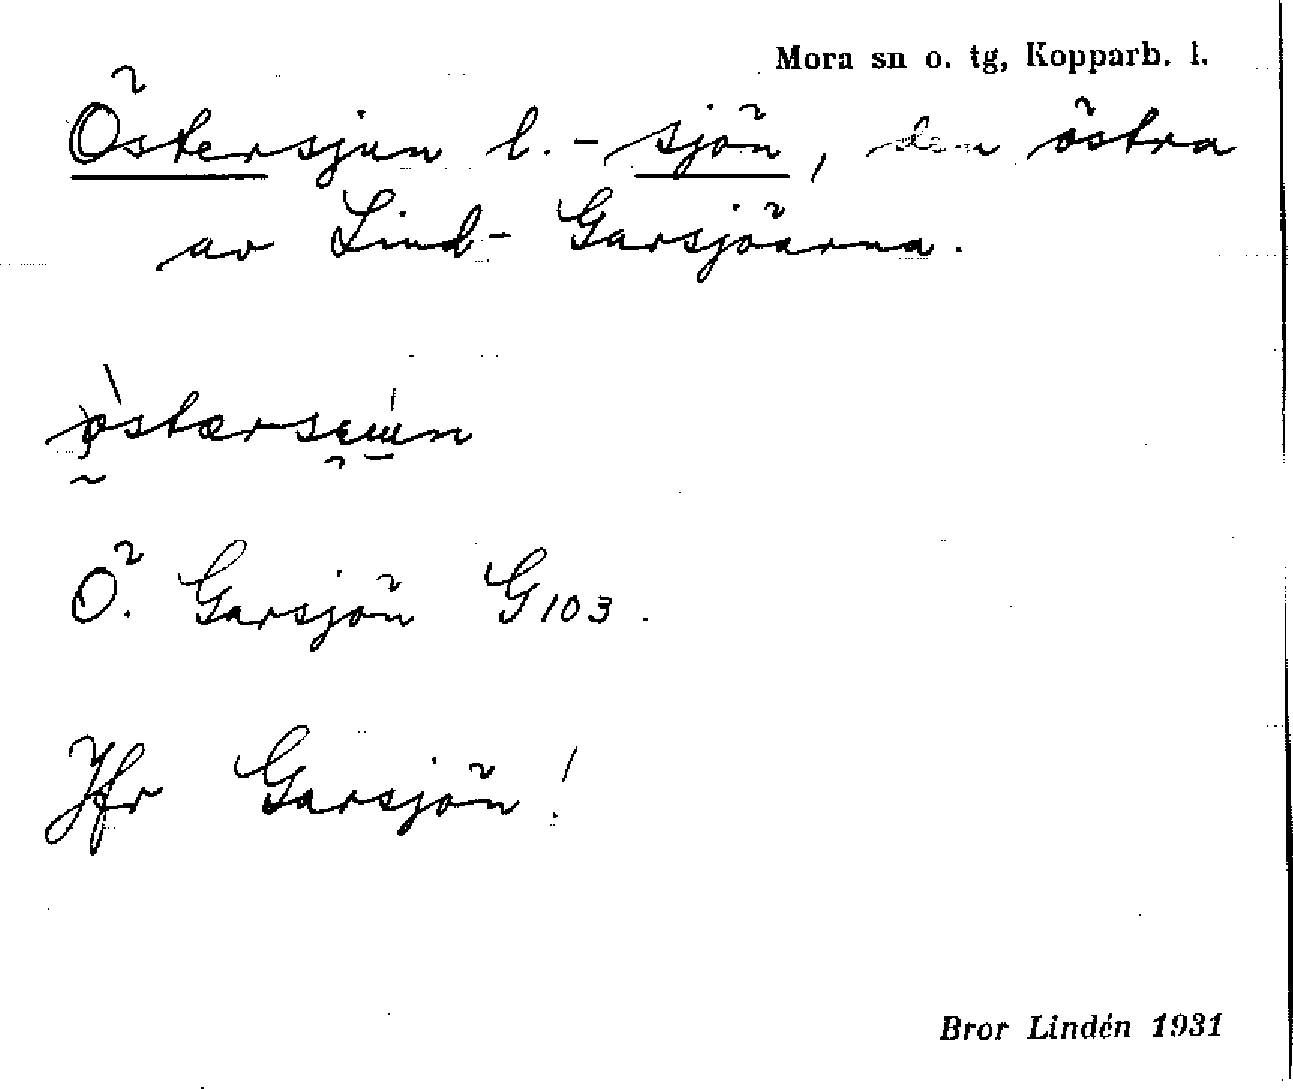 Mora sn o. tg, Kopparb. l.
Östersjun l. -sjön, den östra
av Lind- Garsjöarna.
Ö. Garsjön G103.
Jfr Garsjön!
Bror Lindén 1931